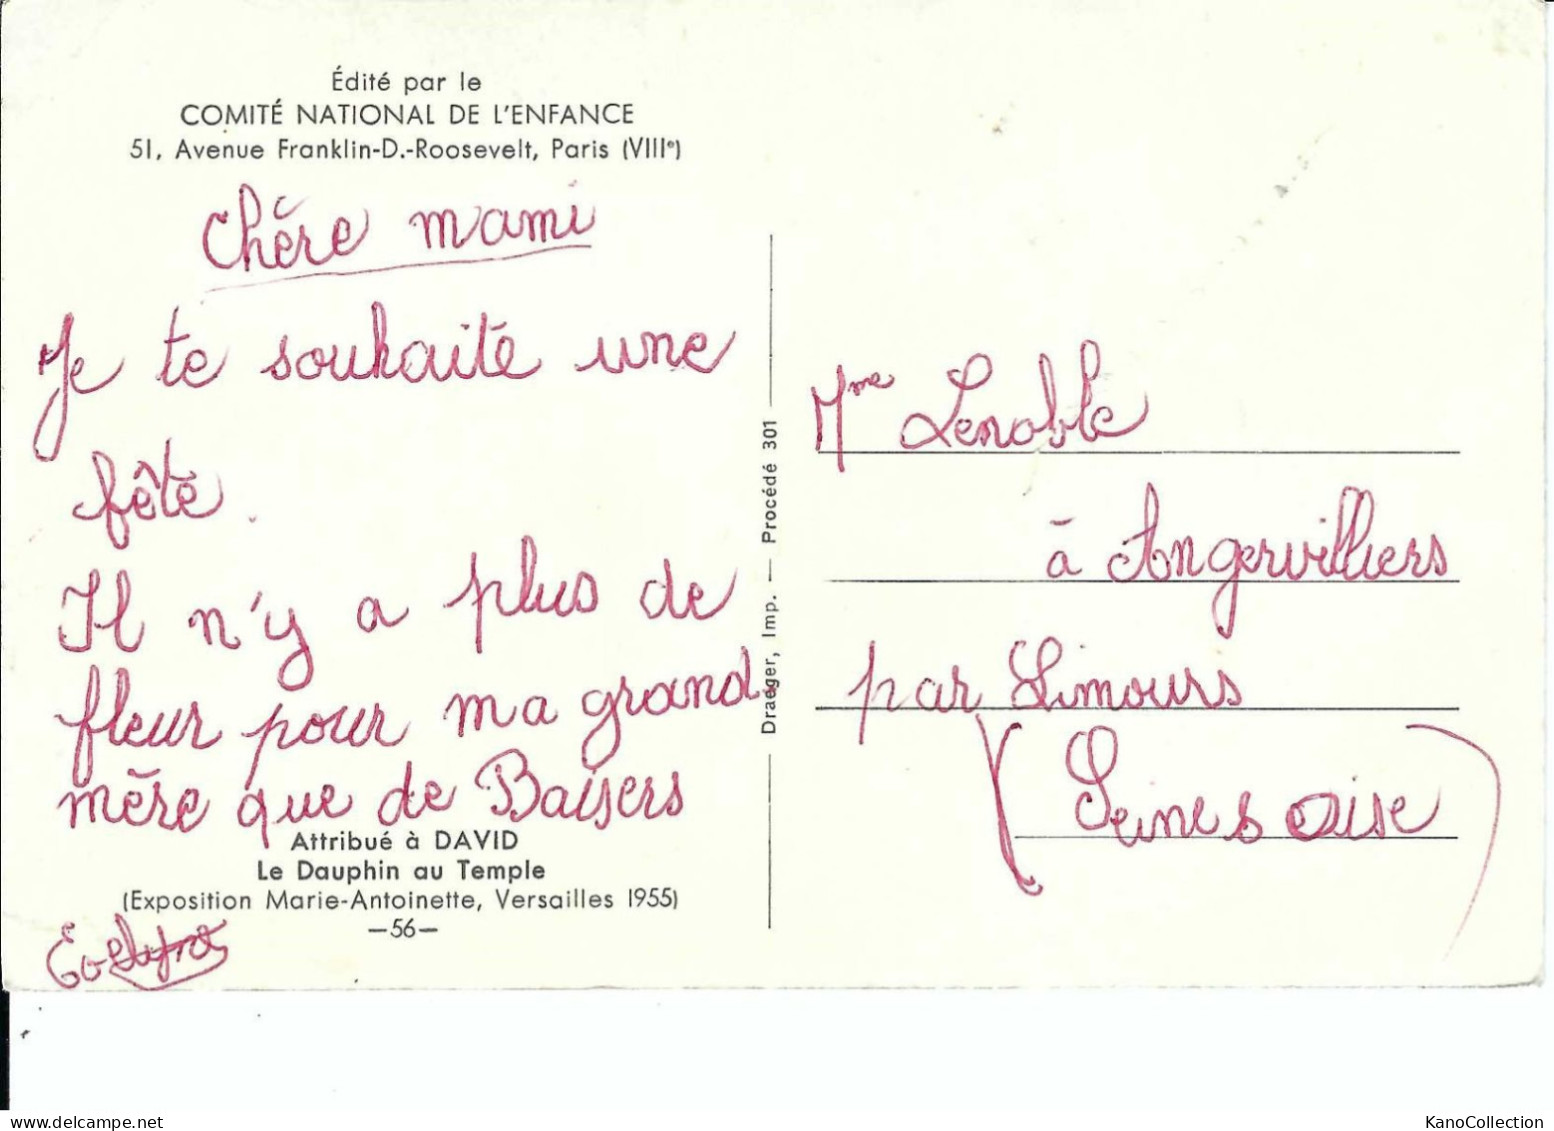 Édité par le
COMITÉ NATIONAL DE L'ENFANCE
51, Avenue Franklin-D.-Roosevelt, Paris (VIIIe)
Chère mami
Je te souhaite une
fête.
Il n'y a plus de
fleur pour ma grand
mère que de Baisers
Attribué à DAVID
Le Dauphin au Temple
(Exposition Marie-Antoinette, Versailles 1955)
—56—
Draeger, Imp. — Procédé 301
Mme Lenoble
à Angervilliers
par Limours
(Seine &amp; Oise)
KanoCollection